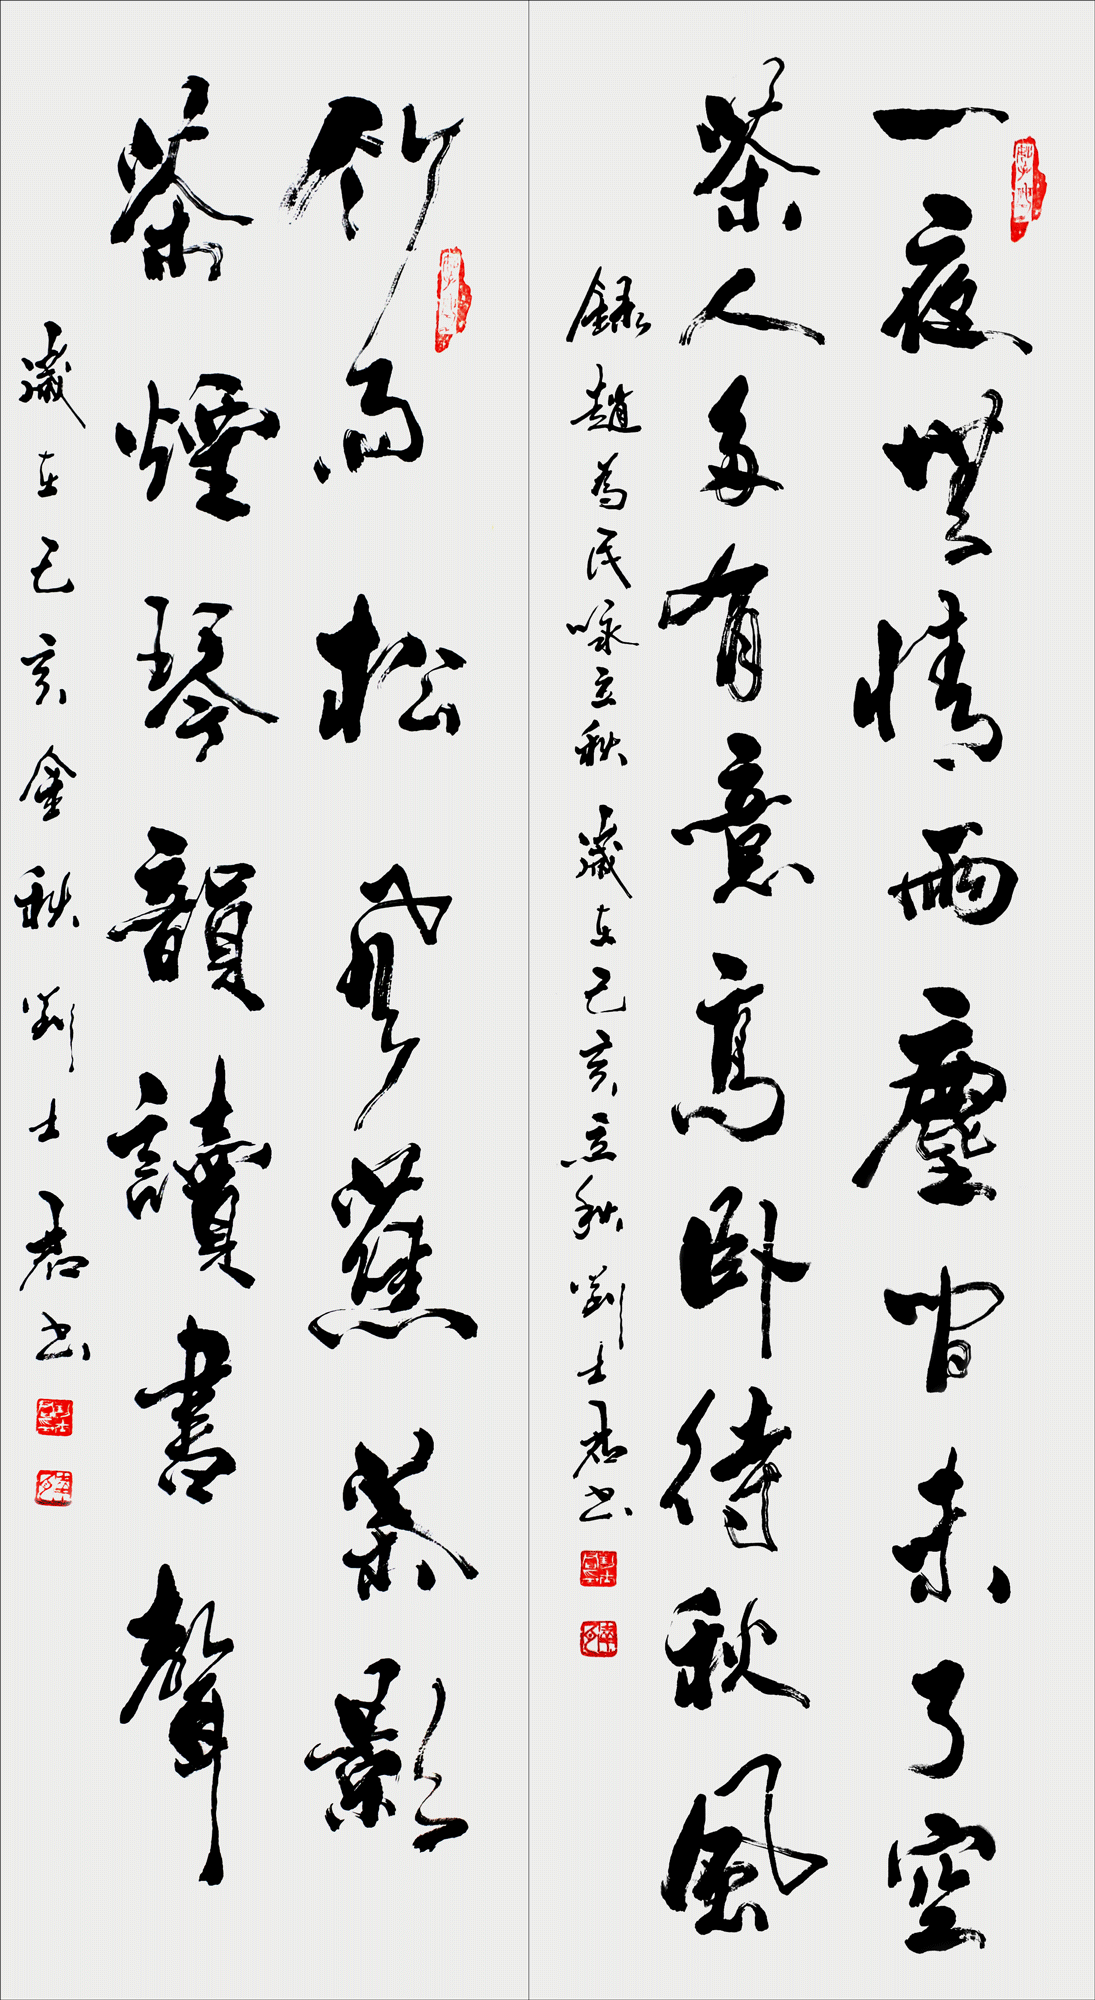 一夜無情雨塵間未了空
茶人多有意高卧待秋風
錄趙為民咏立秋 歲在己亥立秋 劉士君書
竹雨松風蕉葉影
茶煙琴韻讀書聲
歲在己亥金秋劉士君書